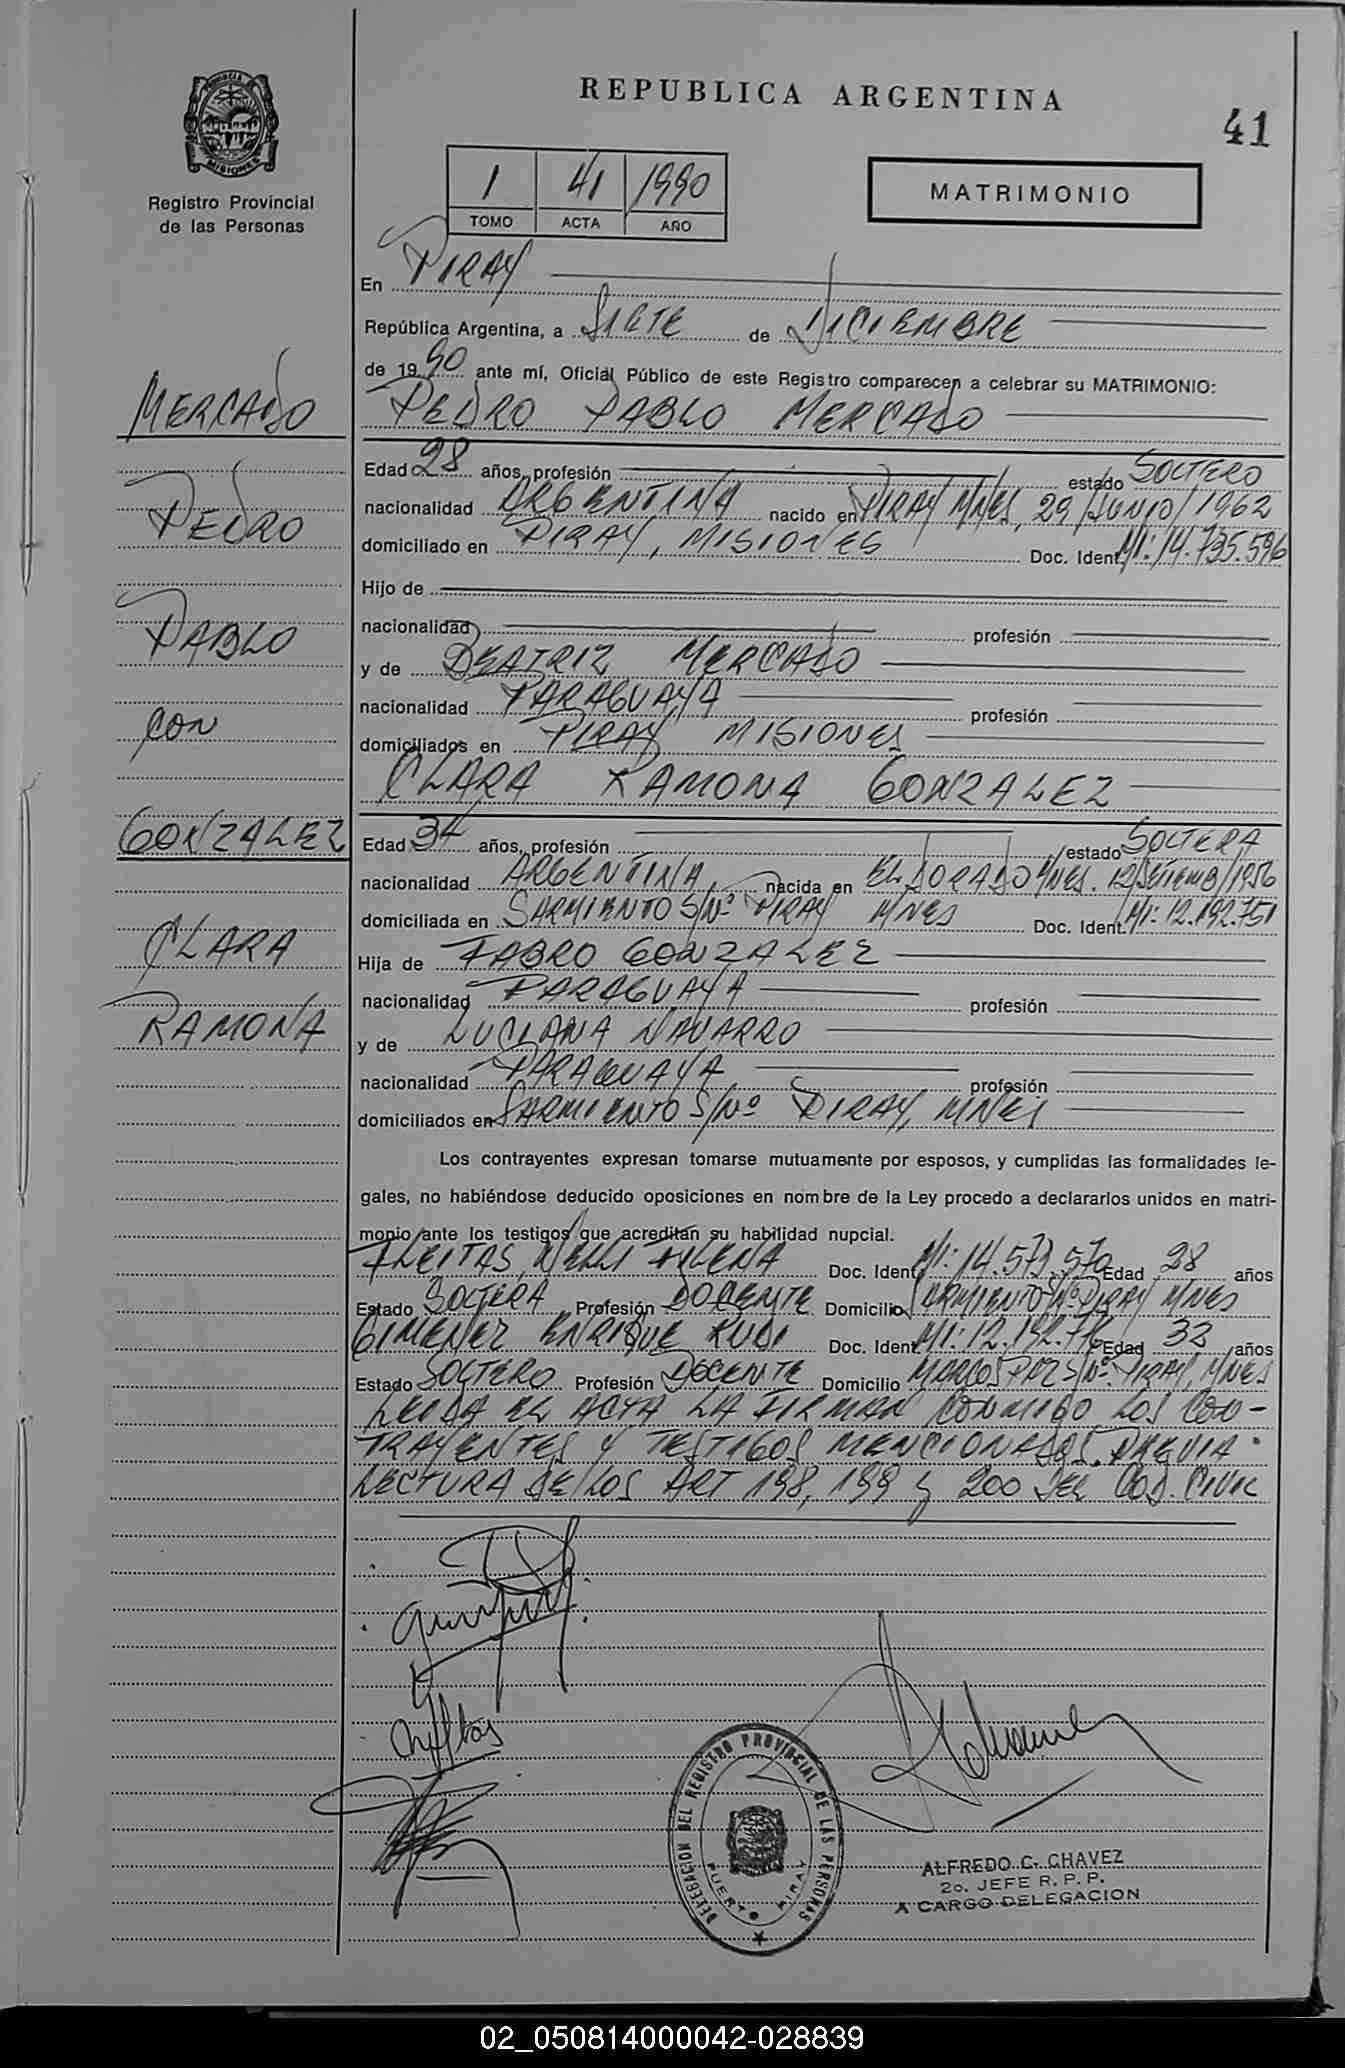 REPUBLICA ARGENTINA
41
PROVINCIA DE
MISIONES
Registro Provincial
de las Personas
1 41 1990
TOMO ACTA AÑO
MATRIMONIO
MERCADO
PEDRO
PABLO
CON
GONZALEZ
CLARA
RAMONA
En PIRAY
República Argentina, a SIETE de DICIEMBRE
de 1990 ante mí, Oficial Público de este Registro comparecen a celebrar su MATRIMONIO:
PEDRO PABLO MERCADO
Edad 28 años, profesión estado SOLTERO
nacionalidad ARGENTINA nacido en PIRAY MNES, 29/JUNIO/1962
domiciliado en PIRAY, MISIONES Doc. Ident. MI: 14.735.596
Hijo de
nacionalidad profesión
y de BEATRIZ MERCADO
nacionalidad PARAGUAYA profesión
domiciliados en PIRAY MISIONES
CLARA RAMONA GONZALEZ
Edad 34 años, profesión estado SOLTERA
nacionalidad ARGENTINA nacida en ELDORADO MNES. 12/SETIEMB/1956
domiciliada en SARMIENTO S/Nº PIRAY MNES Doc. Ident. MI: 12.192.751
Hija de FABRO GONZALEZ
nacionalidad PARAGUAYA profesión
y de LUCIANA NAVARRO
nacionalidad PARAGUAYA profesión
domiciliados en SARMIENTO S/Nº PIRAY, MNES
Los contrayentes expresan tomarse mutuamente por esposos, y cumplidas las formalidades le-
gales, no habiéndose deducido oposiciones en nombre de la Ley procedo a declararlos unidos en matri-
monio ante los testigos que acreditan su habilidad nupcial.
FLEITAS, NELLI Doc. Ident. MI: 14.573.570 Edad 28 años
Estado SOLTERA Profesión DOCENTE Domicilio SARMIENTO Nº PIRAY MNES
GIMENEZ ENRIQUE RUDI Doc. Ident. MI: 12.192.776 Edad 33 años
Estado SOLTERO Profesión DOCENTE Domicilio MARCOS PAZ S/Nº. PIRAY, MNES
LEIDA EL ACTA LA FIRMAN CONMIGO LOS CON-
TRAYENTES Y TESTIGOS MENCIONADOS. PREVIA
LECTURA DE LOS ART 198, 199 y 200 DEL COD. CIVIL
DELEGACION DEL REGISTRO PROVINCIAL DE LAS PERSONAS
PUERTO PIRAY
ALFREDO C. CHAVEZ
2o. JEFE R. P. P.
A CARGO DELEGACION
02_050814000042-028839